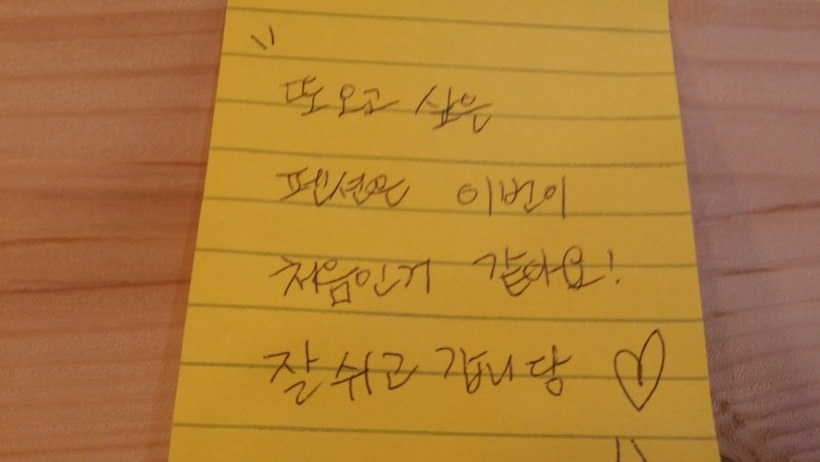 "
또 오고 싶은
펜션은 이번이
처음인거 같아요!
잘 쉬고 갑니당 ♡
"